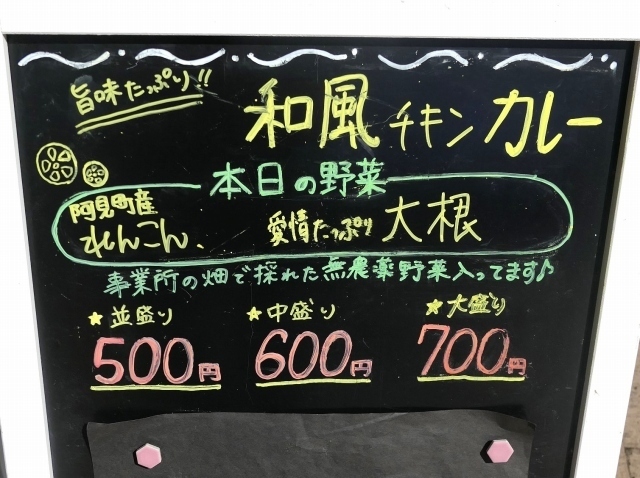 旨味たっぷり!!
和風チキンカレー
本日の野菜
阿見町産
れんこん、
愛情たっぷり大根
事業所の畑で採れた無農薬野菜入ってます♪
★並盛り ★中盛り ★大盛り
500円 600円 700円